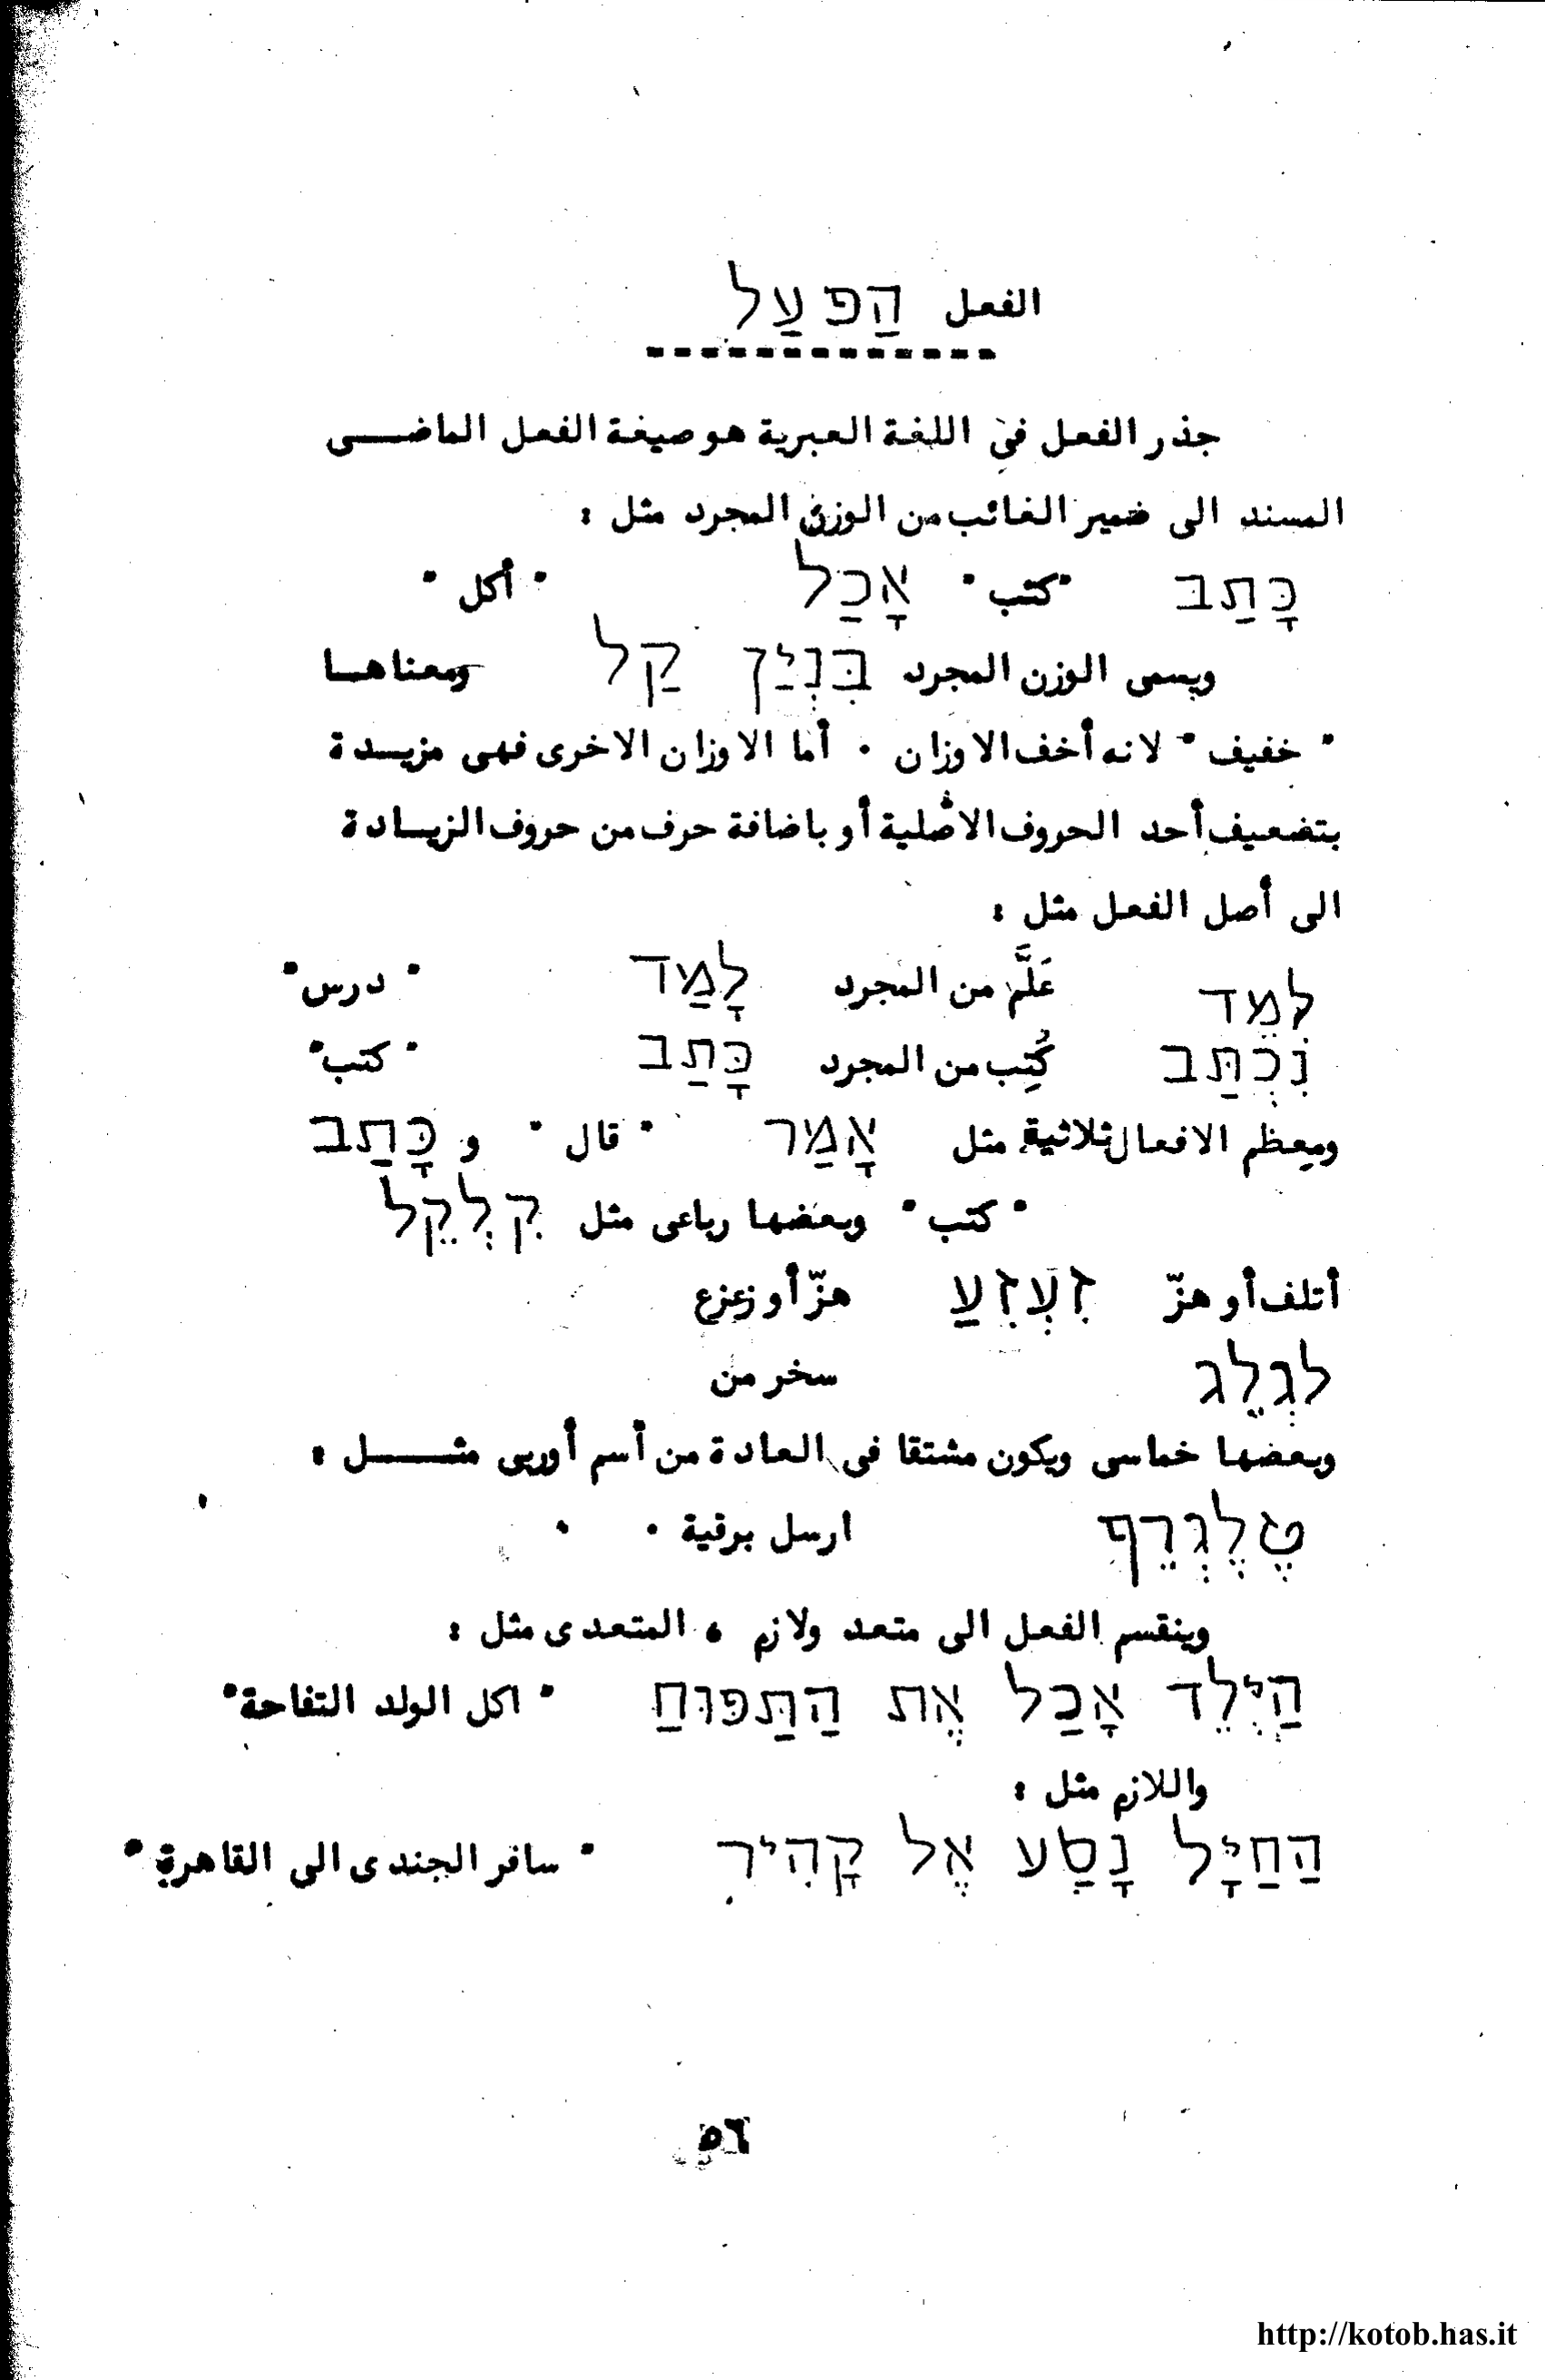 الفعل הַפעַל
جذر الفعل فى اللغة العبرية هو صيغة الفعل الماضى
المسند الى ضمير الغائب من الوزن المجرد مثل :
כָּתַב "كتب" אָכַל "أكل"
ويسمى الوزن المجرد בִּנְיַן קַל ومعناها
"خفيف" لانه أخف الاوزان . أما الاوزان الاخرى فهى مزيدة
بتضعيف أحد الحروف الاصلية أو باضافة حرف من حروف الزيادة
الى أصل الفعل مثل :
לִמֵּד عَلَّم من المجرد לָמַד "درس"
נִכְתַּב كُتِب من المجرد כָּתַב "كتب"
ومعظم الافعال ثلاثية مثل אָמַר "قال" و כָּתַב
"كتب" وبعضها رباعى مثل קִלְקֵל
أتلف أو هزّ זִעְזִעַ هزّ أو زعزع
לִגְלֵג سخر من
وبعضها خماسى ويكون مشتقا فى العادة من أسم أوربى مثل :
טֶלֶגְרֵף ارسل برقية .
وينقسم الفعل الى متعد ولازم ، المتعدى مثل :
הַיֶּלֵד אָכַל אֶת הַתַּפּוּחַ "اكل الولد التفاحة"
واللازم مثل :
הַחַיָּל נָסַע אֶל קָהִיר "سافر الجندى الى القاهرة"
٥٦
http://kotob.has.it